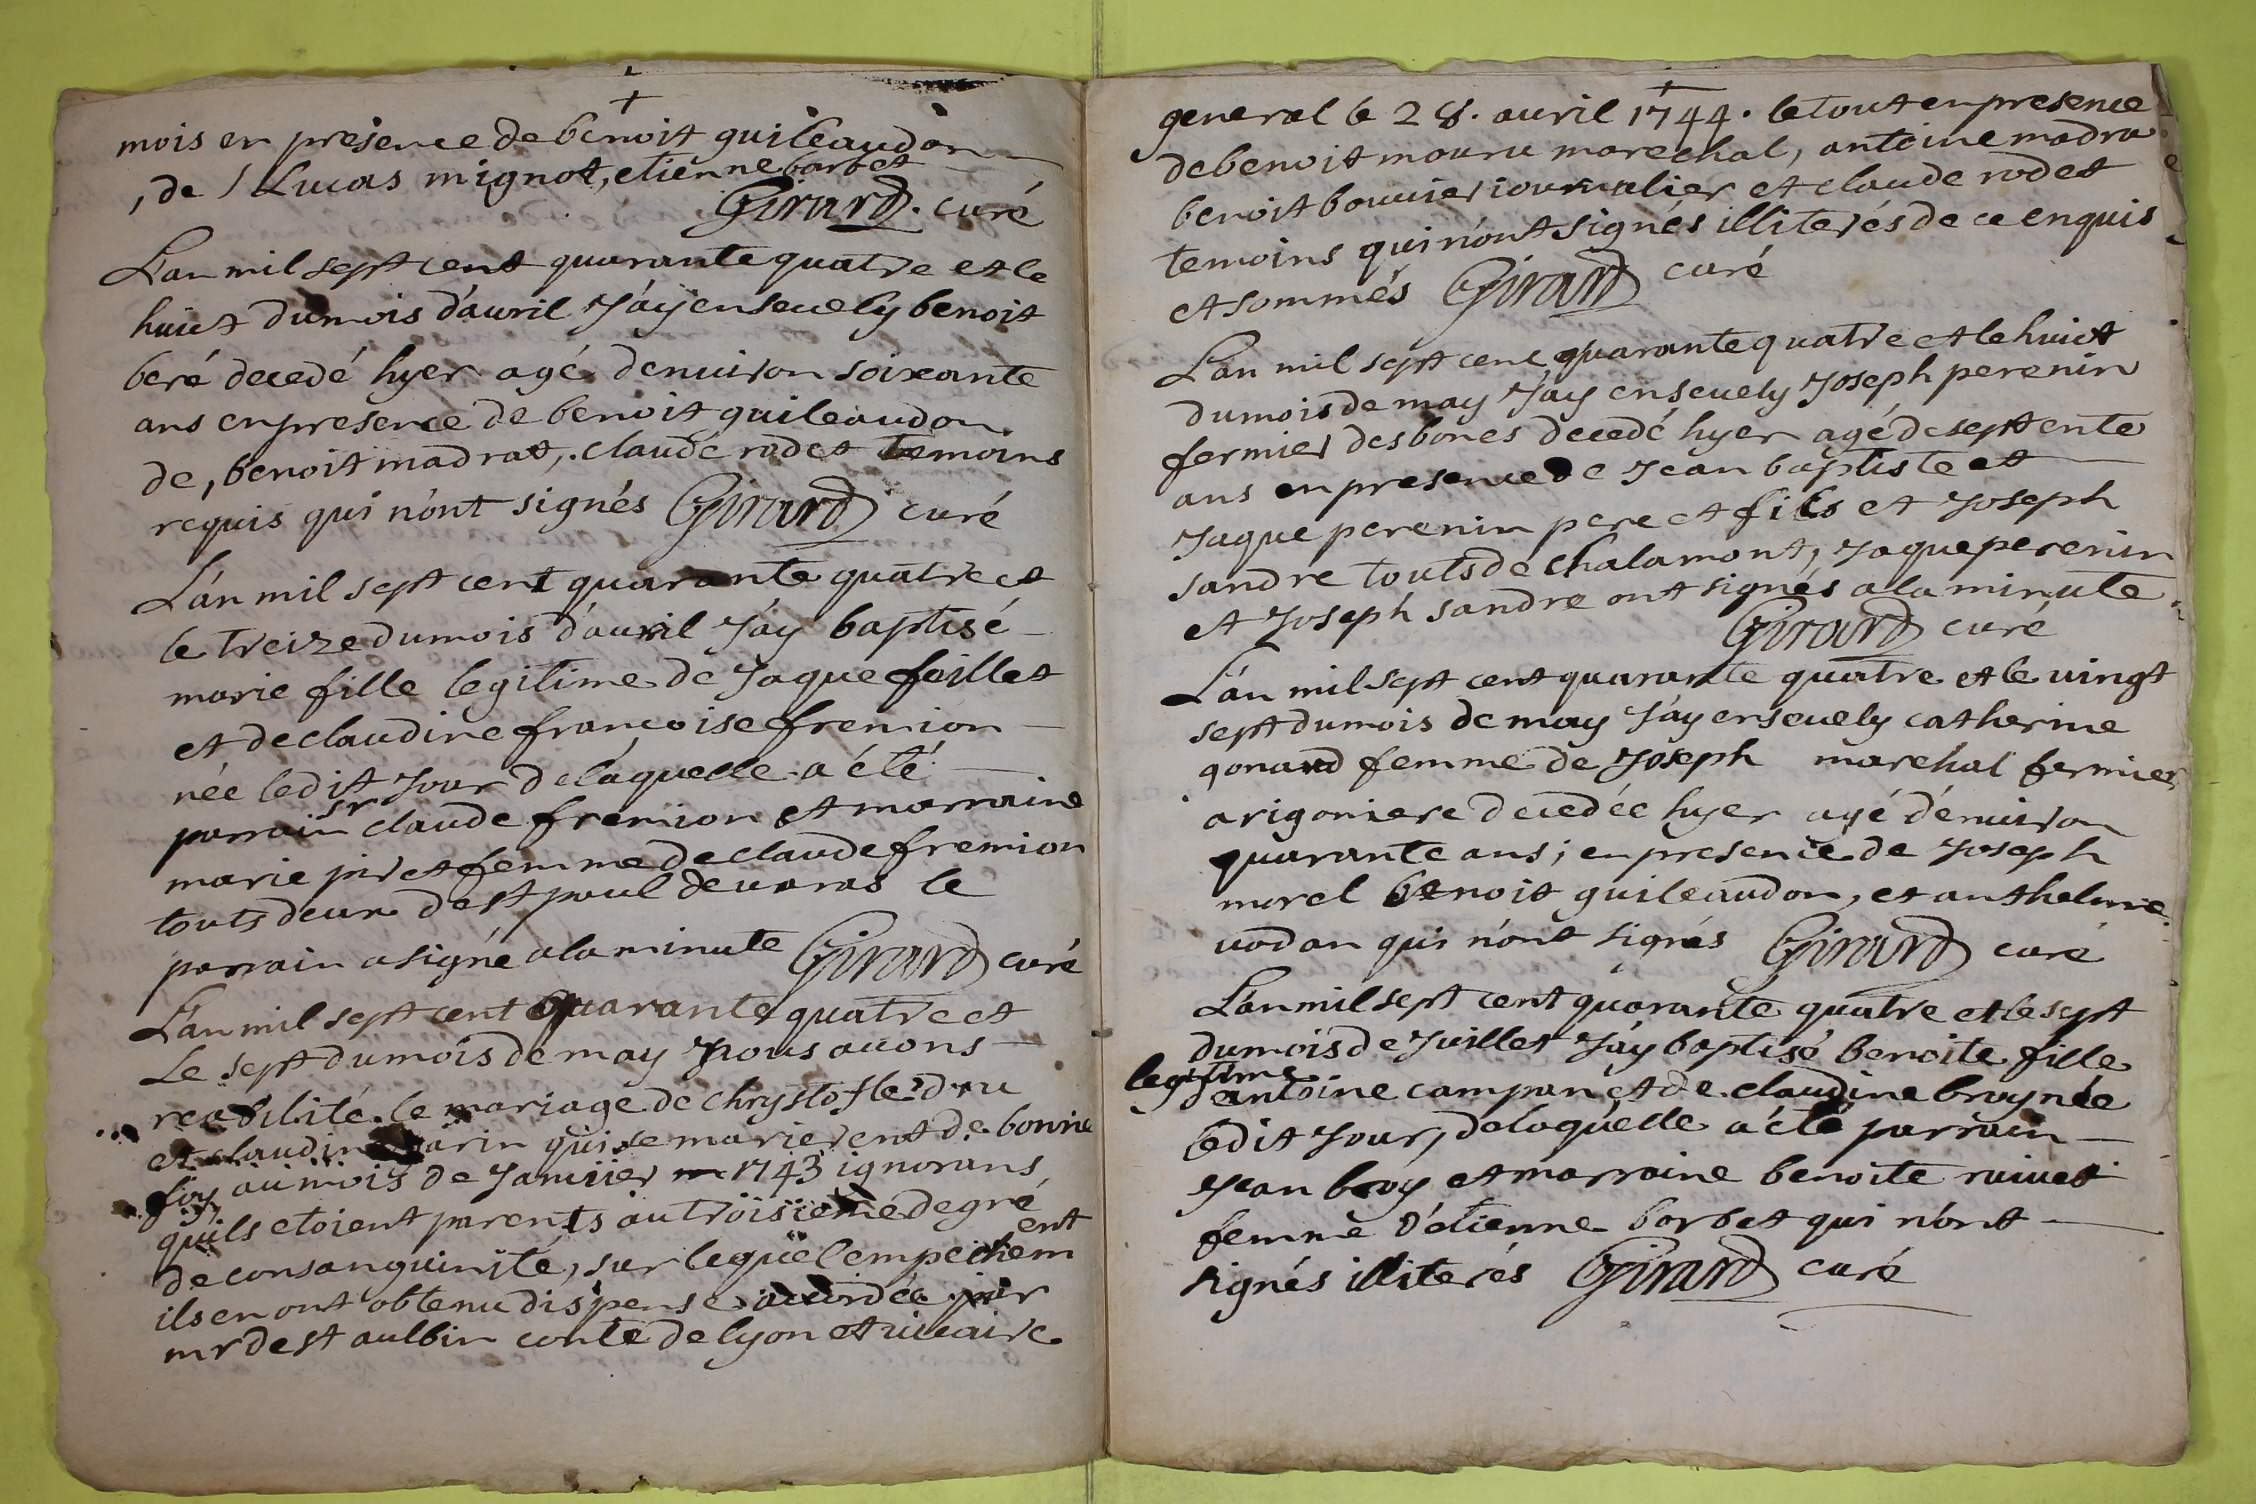 mois en presence de benoit guileaudon
, de / Lucas mignot, etienne barbet
Girard. curé
L'an mil sept cent quarante quatre et le
huict du mois d'avril J'ay ensevely benoit
beré decedé hyer agé denviron soixante
ans en presence de benoit guileaudon
de, benoit madrat, claude rodet temoins
requis qui n'ont signés Girard curé
L'an mil sept cent quarante quatre et
le treize du mois d'avril J'ay baptisé
marie fille legitime de Jaque foillet
et de claudine francoise fremion
née ledit Jour delaquelle a été
parrain sr claude fremion et marraine
marie piret femme de claude fremion
touts deux de st paul de varas le
parrain a signé a la minute Girard curé
L'an mil sept cent quarante quatre et
Le sept du mois de may nous avons
reabilité le mariage de chrystofle dru
et claudine marin qui se marierent de bonne
foy au mois de Janvier 1743 ignorans
quils etoient parents au troisieme degré
de consanguinité, sur lequel empechement
ils en ont obtenu dispense accordée par
mr de st aulbin conte de lyon et vicaire
general le 28. avril 1744. le tout en presence
de benoit mouru marechal, antoine madra
benoit bouvier journalier et claude rodet
temoins qui n'ont signés illiterés de ce enquis
et sommés Girard curé
L'an mil sept cent quarante quatre et le huict
du mois de may J'ay ensevely Joseph perenin
fermier des bones decedé hyer agé de septente
ans en presence de Jean baptiste et
Jaque perenin pere et fils et Joseph
sandre touts de chalamont, Jaque perenin
et Joseph sandre ont signés a la minute
Girard curé
L'an mil sept cent quarante quatre et le vingt
sept du mois de may J'ay ensevely catherine
gonard femme de Joseph marchal fermier
a rigoniere decedée hyer agé d'environ
quarante ans; en presence de Joseph
morel benoit guileaudon, et anthelme
vodan qui n'ont signés Girard curé
L'an mil sept cent quarante quatre et le sept
du mois de Juillet J'ay baptisé benoite fille
legitime
d'antoine campan et de claudine broy née
ledit Jour, delaquelle a été parrain
Jean broy et marraine benoite ruivet
femme d'etienne barbet qui n'ont
signés illiterés Girard curé